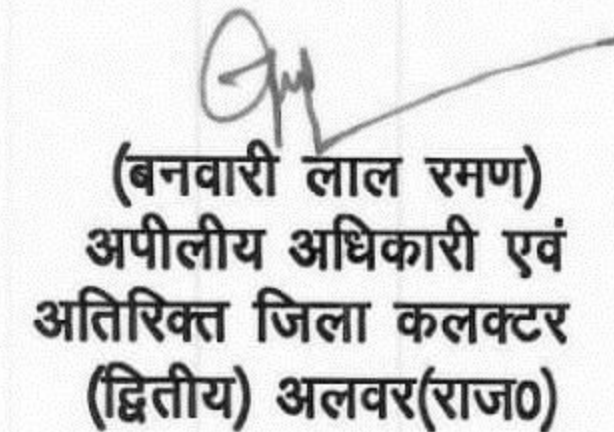 (बनवारी लाल रमण)
अपीलीय अधिकारी एवं
अतिरिक्त जिला कलक्टर
(द्वितीय) अलवर(राज0)